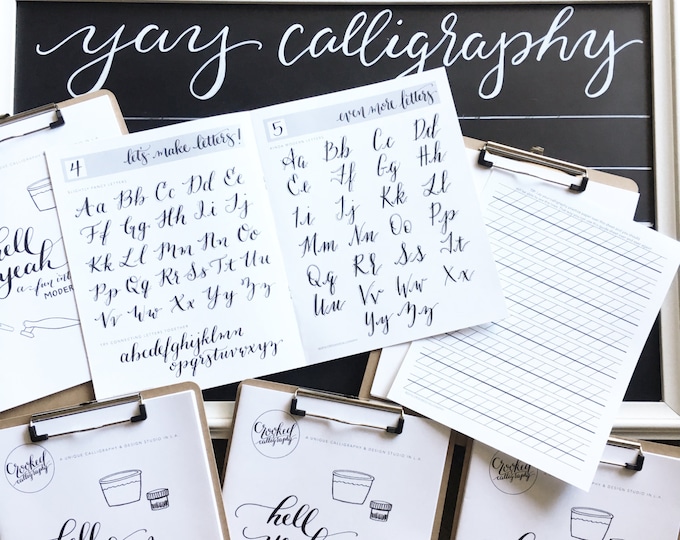 yay calligraphy
4 let's make letters!
Aa Bb Cc Dd Ee
Ff Gg Hh Ii Jj
Kk Ll Mm Nn Oo
Pp Qq Rr Ss Tt Uu
Vv Ww Xx Yy Zz
TRY CONNECTING LETTERS TOGETHER
abcdefghijklmn
opqrstuvwxyz
5 even more letters
Aa Bb Cc Dd
Ee Ff Gg Hh
Ii Jj Kk Ll
Mm Nn Oo Pp
Qq Rr Ss Tt
Uu Vv Ww Xx
Yy Zz
hell
yeah
a fun int
MODER
Crooked
calligraphy
A UNIQUE CALLIGRAPHY & DESIGN STUDIO IN L.A.
Crooked
calligraphy
A UNIQUE CALLIGRAPHY & DESIGN STUDIO IN L.A.
hell
Crooked
calligraphy
A UNIQUE CALLIGRAPHY & DESIGN STUDIO IN L.A.